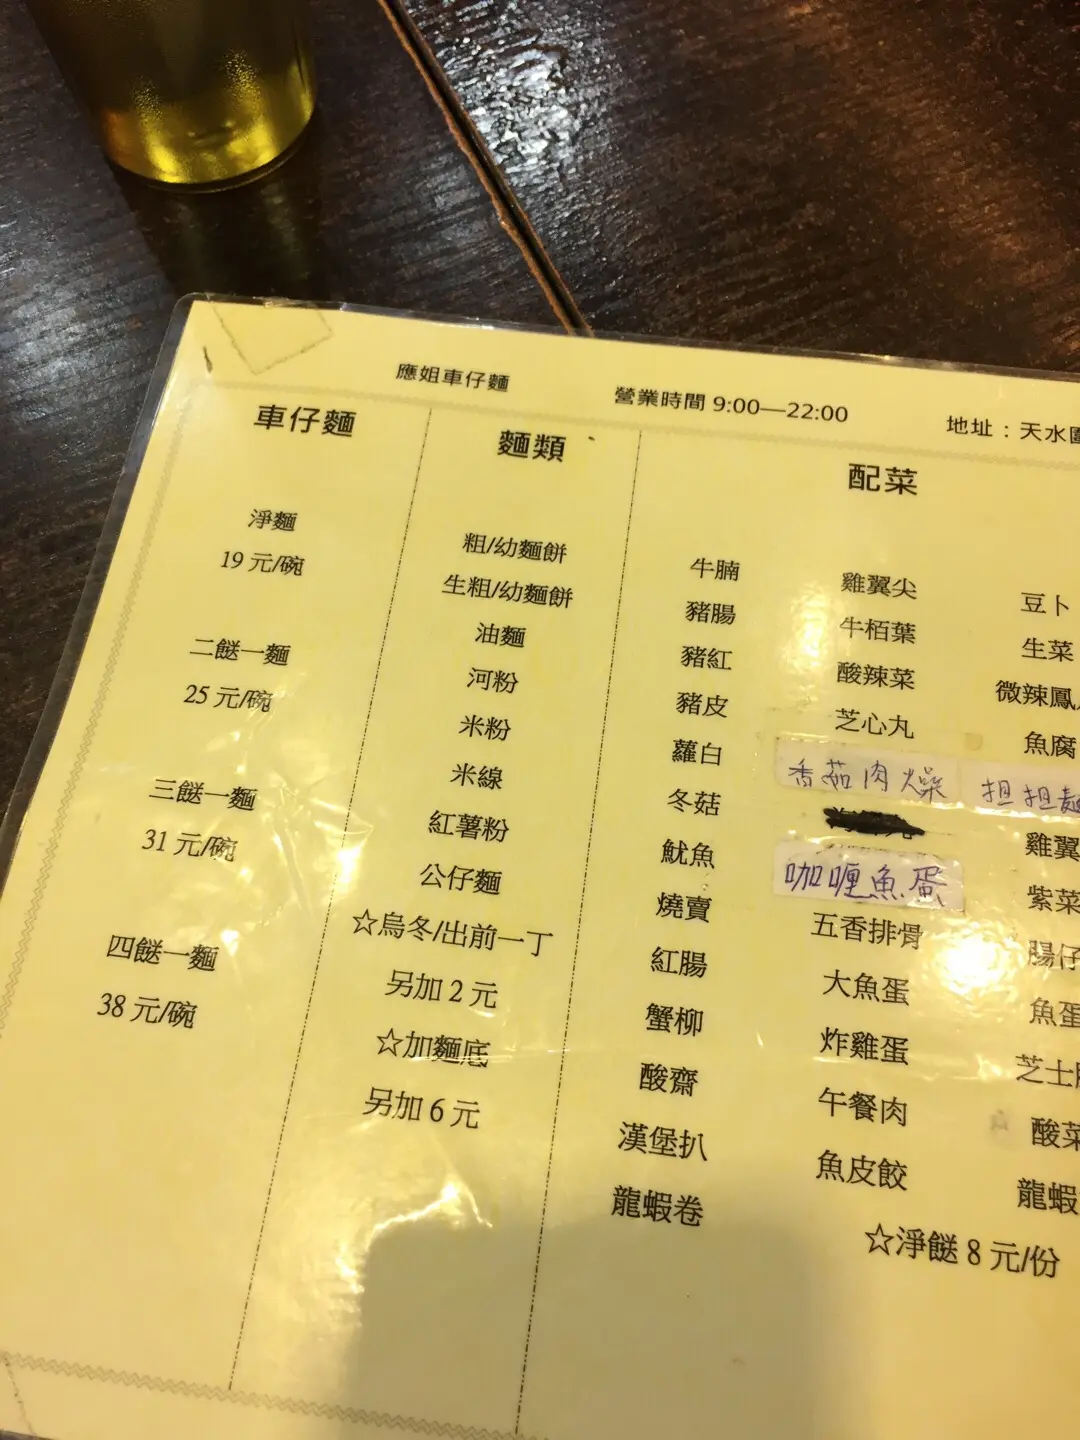 應姐車仔麵
營業時間 9:00—22:00
地址：天水圍
車仔麵
淨麵
19 元/碗
二餸一麵
25 元/碗
三餸一麵
31 元/碗
四餸一麵
38 元/碗
麵類
粗/幼麵餅
生粗/幼麵餅
油麵
河粉
米粉
米線
紅薯粉
公仔麵
☆烏冬/出前一丁
另加 2 元
☆加麵底
另加 6 元
配菜
牛腩
豬腸
豬紅
豬皮
蘿白
冬菇
魷魚
燒賣
紅腸
蟹柳
酸齋
漢堡扒
龍蝦卷
雞翼尖
牛栢葉
酸辣菜
芝心丸
香茄肉燥
咖喱魚蛋
五香排骨
大魚蛋
炸雞蛋
午餐肉
魚皮餃
豆卜
生菜
微辣鳳
魚腐
担担麵
雞翼
紫菜
腸仔
魚蛋
芝士
酸菜
龍蝦
☆淨餸 8 元/份